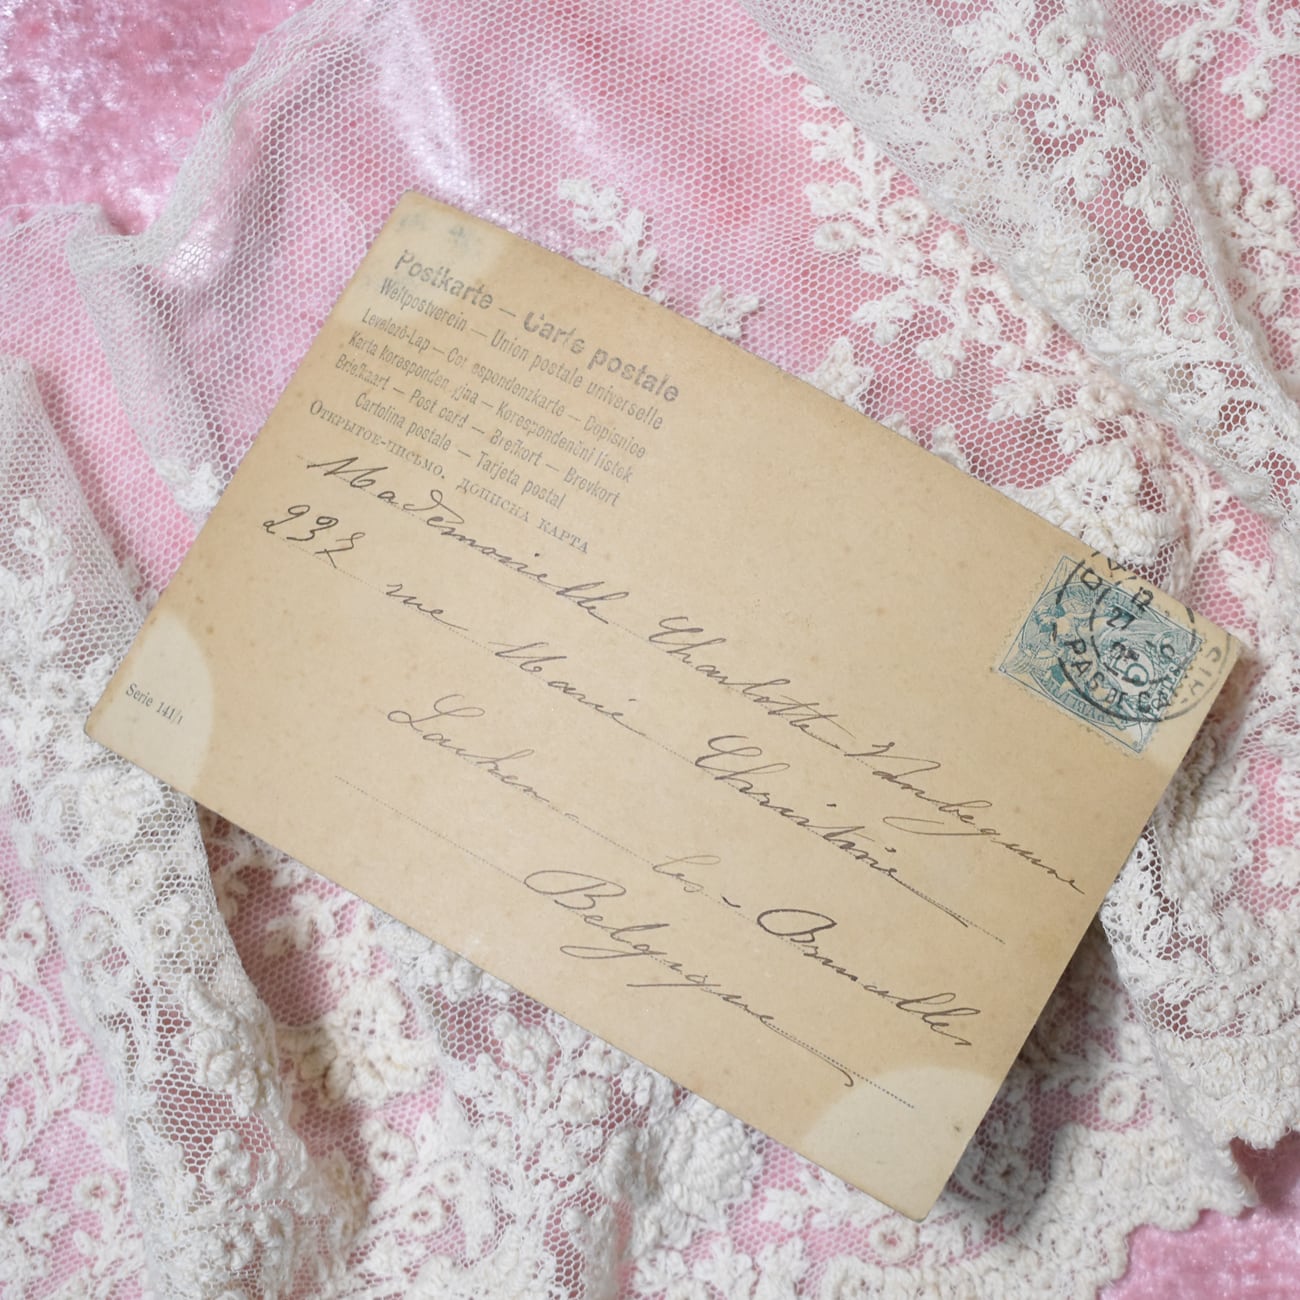 Postkarte — Carte postale
Weltpostverein — Union postale universelle
Levelező-Lap — Correspondenzkarte — Dopisnice
Karta korespondencyjna — Korespondenční lístek
Briefkaart — Post card — Brefkort — Brevkort
Cartolina postale — Tarjeta postal
Открытое-письмо. дописна карта
Mademoiselle Charlotte
237 rue Marie Christine
Laeken - les - Bruxelles
Belgique
Serie 141/1
PAS
CALAIS